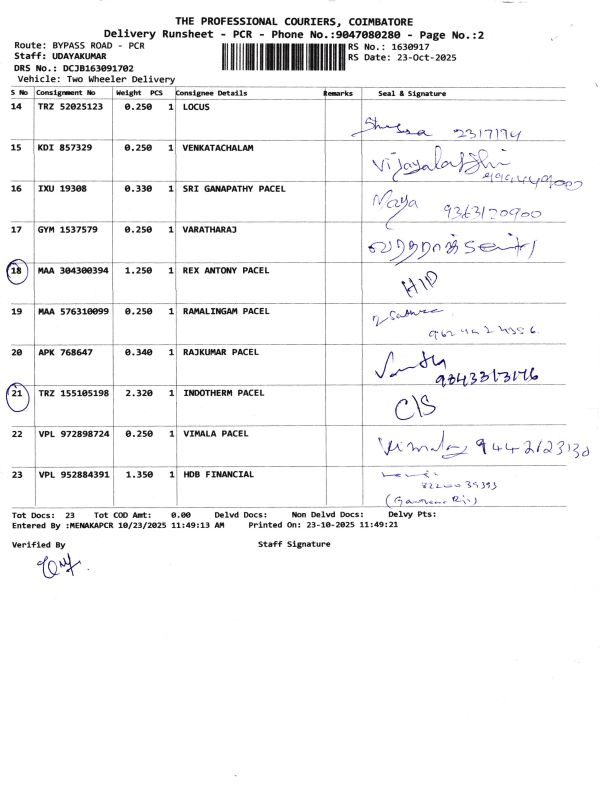 THE PROFESSIONAL COURIERS, COIMBATORE
Delivery Runsheet - PCR - Phone No.:9047080280 - Page No.:2
Route: BYPASS ROAD - PCR RS No.: 1630917
Staff: UDAYAKUMAR RS Date: 23-Oct-2025
DRS No.: DCJB163091702
Vehicle: Two Wheeler Delivery
S No Consignment No Weight PCS Consignee Details Remarks Seal & Signature
14 TRZ 52025123 0.250 1 LOCUS
2317174
15 KDI 857329 0.250 1 VENKATACHALAM
16 IXU 19308 0.330 1 SRI GANAPATHY PACEL
Maya 9363170900
17 GYM 1537579 0.250 1 VARATHARAJ
18 MAA 304300394 1.250 1 REX ANTONY PACEL
HID
19 MAA 576310099 0.250 1 RAMALINGAM PACEL
20 APK 768647 0.340 1 RAJKUMAR PACEL
9843313176
21 TRZ 155105198 2.320 1 INDOTHERM PACEL
C/S
22 VPL 972898724 0.250 1 VIMALA PACEL
Vimala 9442123130
23 VPL 952884391 1.350 1 HDB FINANCIAL
Tot Docs: 23 Tot COD Amt: 0.00 Delvd Docs: Non Delvd Docs: Delvy Pts:
Entered By :MENAKAPCR 10/23/2025 11:49:13 AM Printed On: 23-10-2025 11:49:21
Verified By Staff Signature